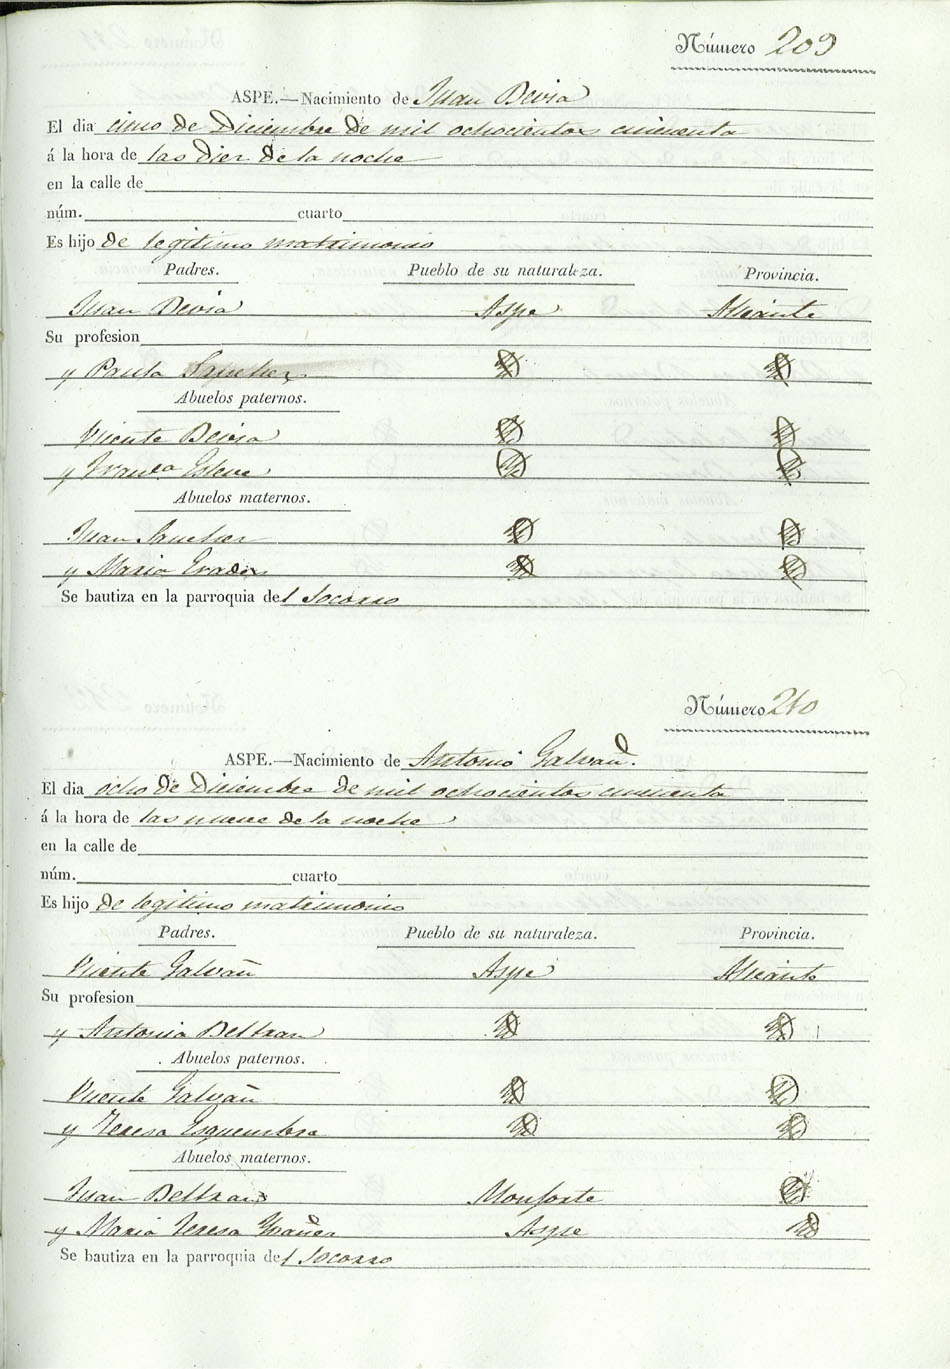 Número 209
ASPE.—Nacimiento de Juan Bevia
El dia cinco de Diciembre de mil ochocientos cincuenta
á la hora de las diez de la noche
en la calle de
núm. cuarto
Es hijo de legitimo matrimonio
Padres. Pueblo de su naturaleza. Provincia.
Juan Bevia Aspe Alicante
Su profesion
y Paula Sanchez
Abuelos paternos.
Vicente Bevia
y Franca Esteve
Abuelos maternos.
Juan Sanchez
y Maria
Se bautiza en la parroquia del Socorro
Número 210
ASPE.—Nacimiento de Antonio Galvañ.
El dia ocho de Diciembre de mil ochocientos cincuenta
á la hora de las nueve de la noche
en la calle de
núm. cuarto
Es hijo de legitimo matrimonio
Padres. Pueblo de su naturaleza. Provincia.
Vicente Galvañ Aspe Alicante
Su profesion
y Antonia Beltran
Abuelos paternos.
Vicente Galvañ
y Teresa Esquembre
Abuelos maternos.
Juan Beltran Monforte
y Maria Teresa Ybañez Aspe
Se bautiza en la parroquia del Socorro